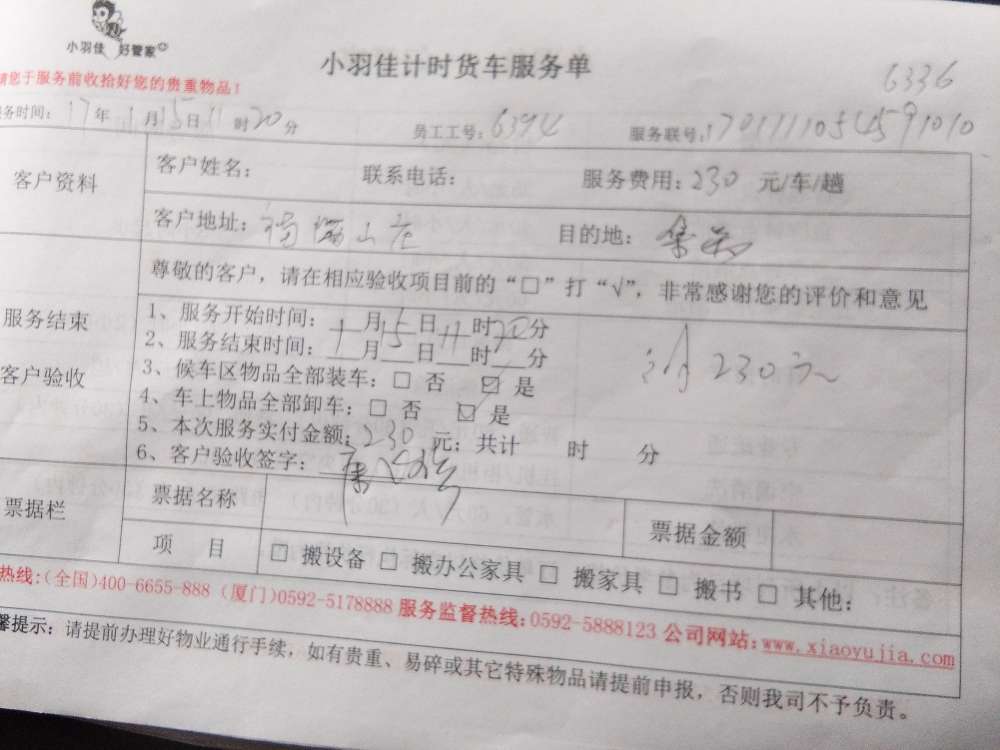 小羽佳 好管家
小羽佳计时货车服务单
6336
请您于服务前收拾好您的贵重物品！
服务时间：17年1月15日11时20分 员工工号：6394 服务联号：
客户资料
客户姓名： 联系电话： 服务费用：230 元/车/趟
客户地址： 山庄 目的地：集美
尊敬的客户，请在相应验收项目前的“□”打“√”，非常感谢您的评价和意见
服务结束
客户验收
1、服务开始时间：1月15日11时20分
2、服务结束时间：1月15日11时 分
3、候车区物品全部装车：□ 否 ☑ 是
4、车上物品全部卸车：□ 否 ☑ 是
5、本次服务实付金额：230元；共计 时 分
6、客户验收签字：
230元
票据栏
票据名称 票据金额
项 目 □ 搬设备 □ 搬办公家具 □ 搬家具 □ 搬书 □ 其他：
热线：(全国)400-6655-888 (厦门)0592-5178888 服务监督热线：0592-5888123 公司网站：www.xiaoyujia.com
馨提示：请提前办理好物业通行手续，如有贵重、易碎或其它特殊物品请提前申报，否则我司不予负责。